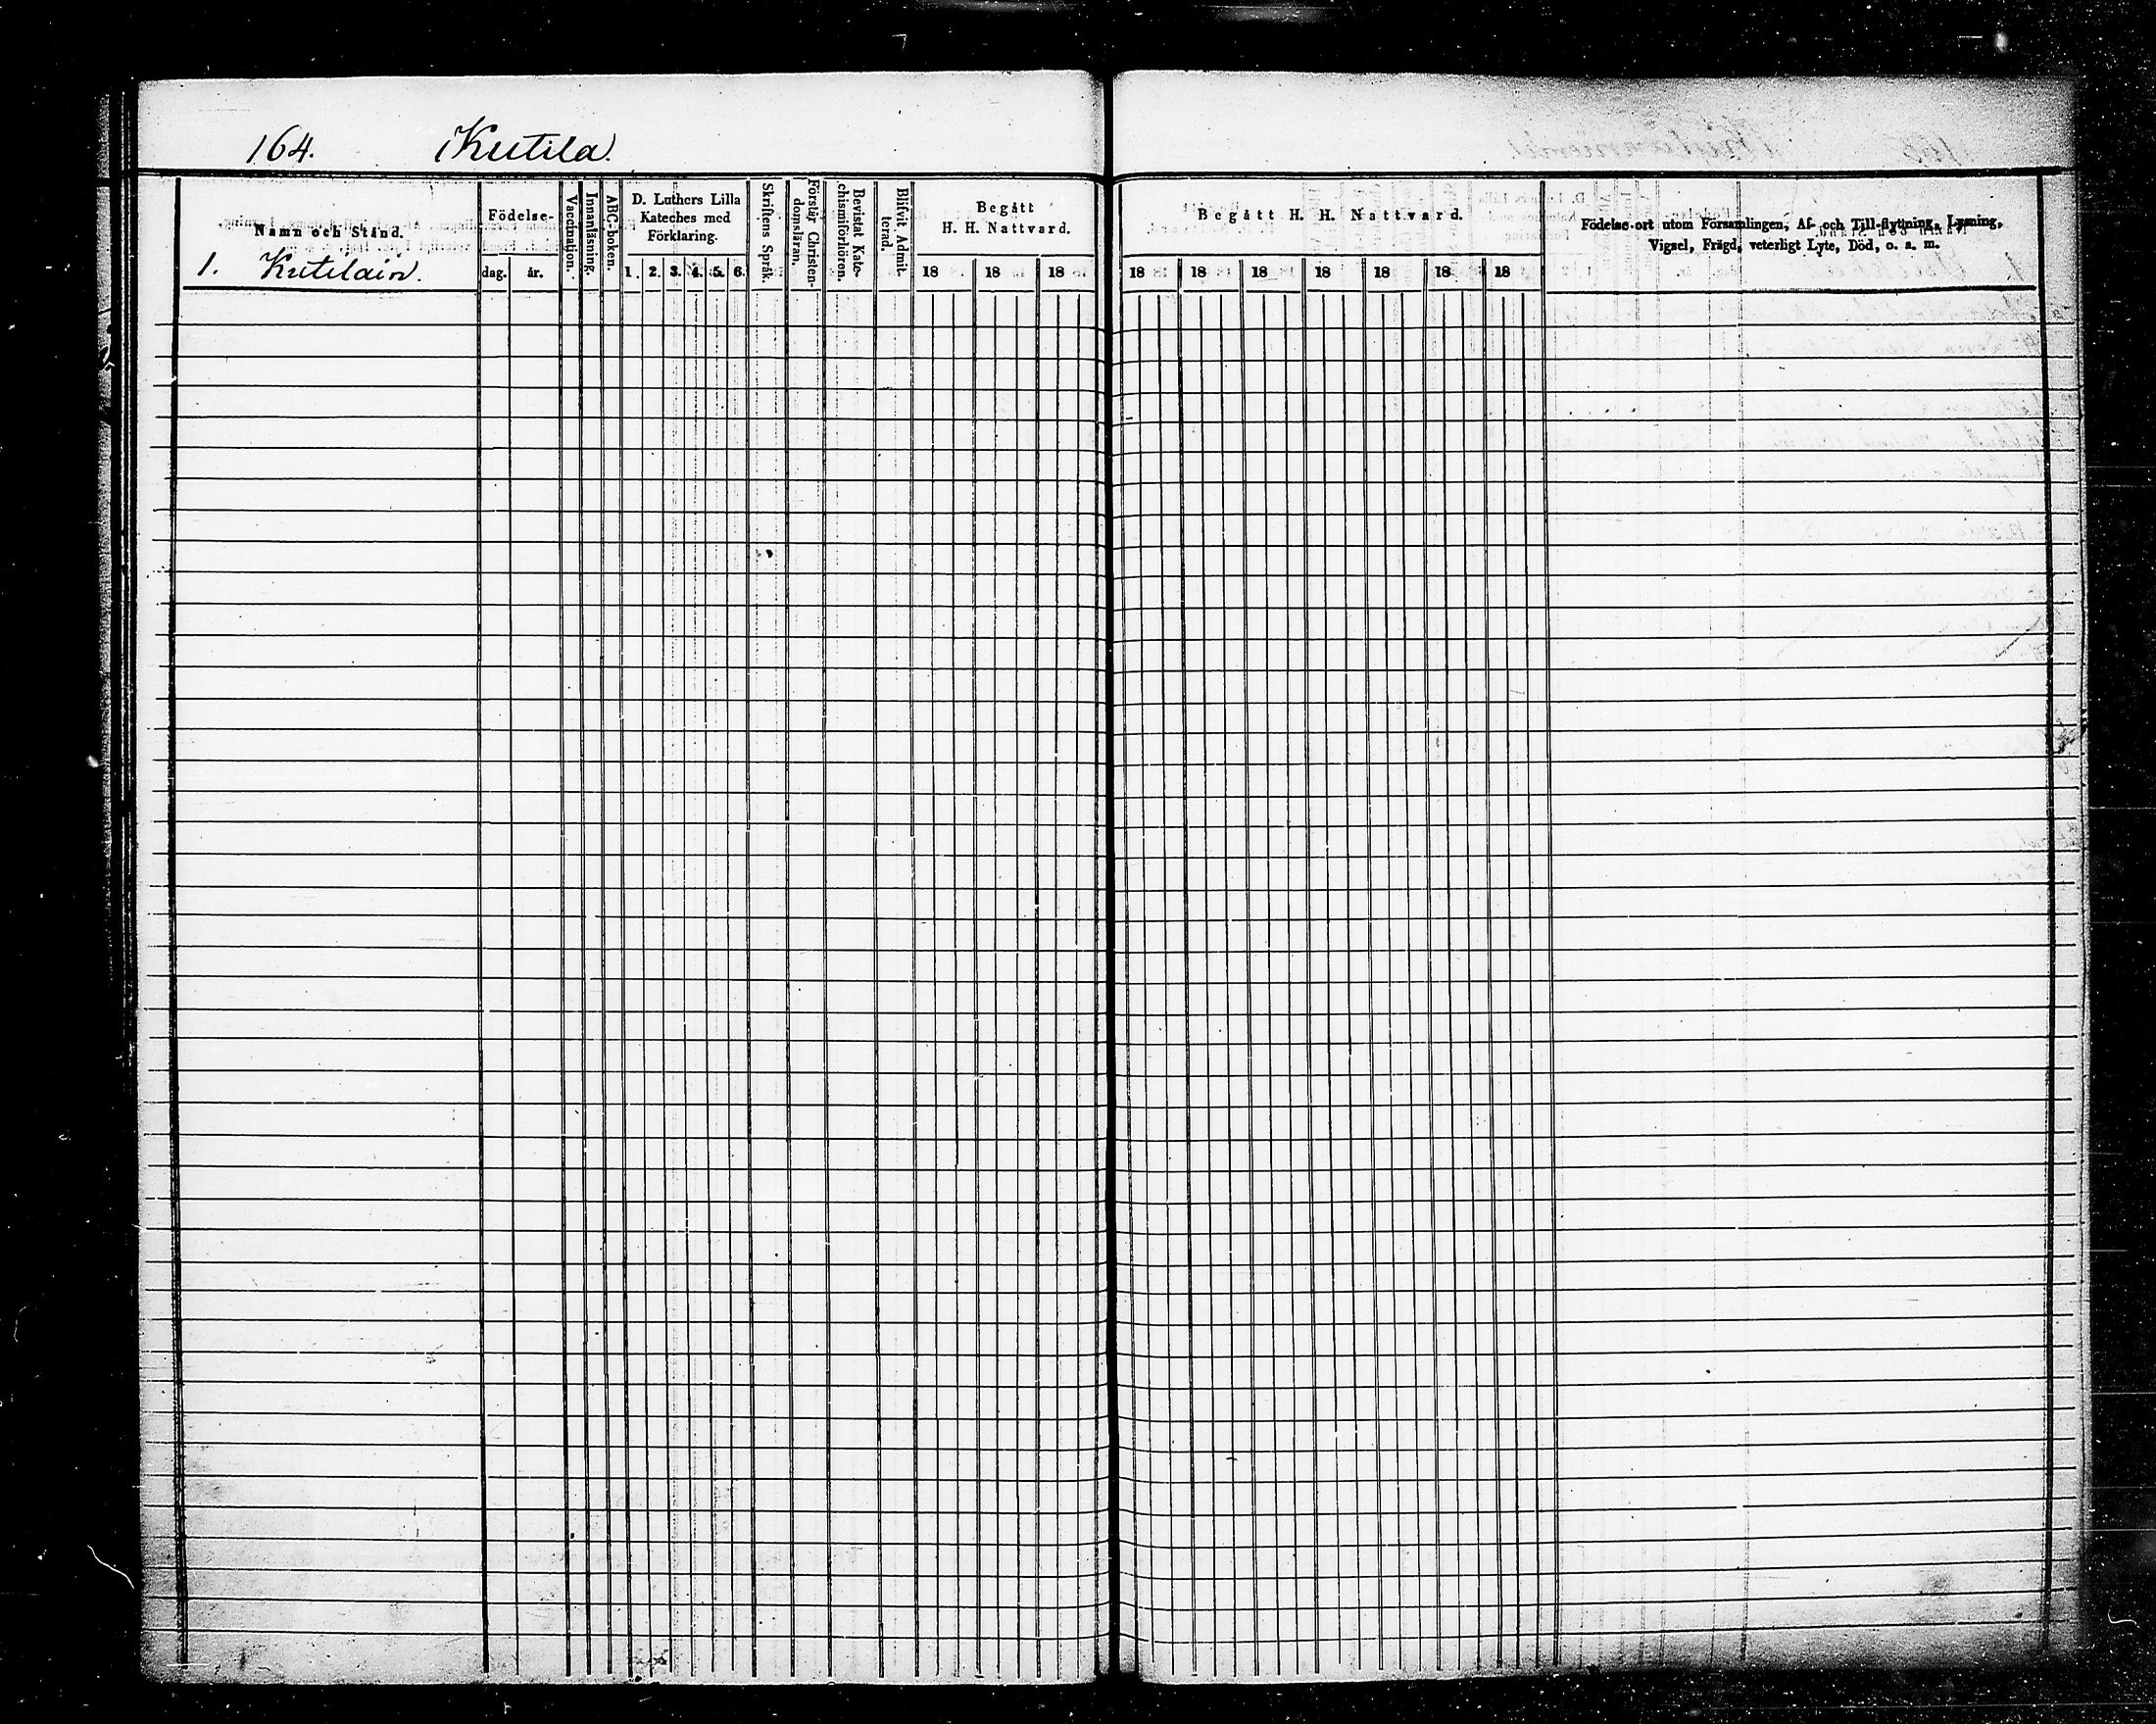 164. Kutila.
Namn och Stånd.
1. Kutilain.
Födelse-
dag. år.
Vaccination.
Innanläsning.
ABC-boken.
D. Luthers Lilla
Kateches med
Förklaring.
1. 2. 3. 4. 5. 6.
Skriftens Språk.
Förstår Christen-
domsläran.
Bevistat Kate-
chismiförhören.
Blifvit Admit-
terad.
Begått
H. H. Nattvard.
18 18 18
Begått H. H. Nattvard.
18 18 18 18 18 18 18
Födelse-ort utom Församlingen, Af- och Till-flyttning, Lysning,
Vigsel, Frägd, veterligt Lyte, Död, o. s. m.